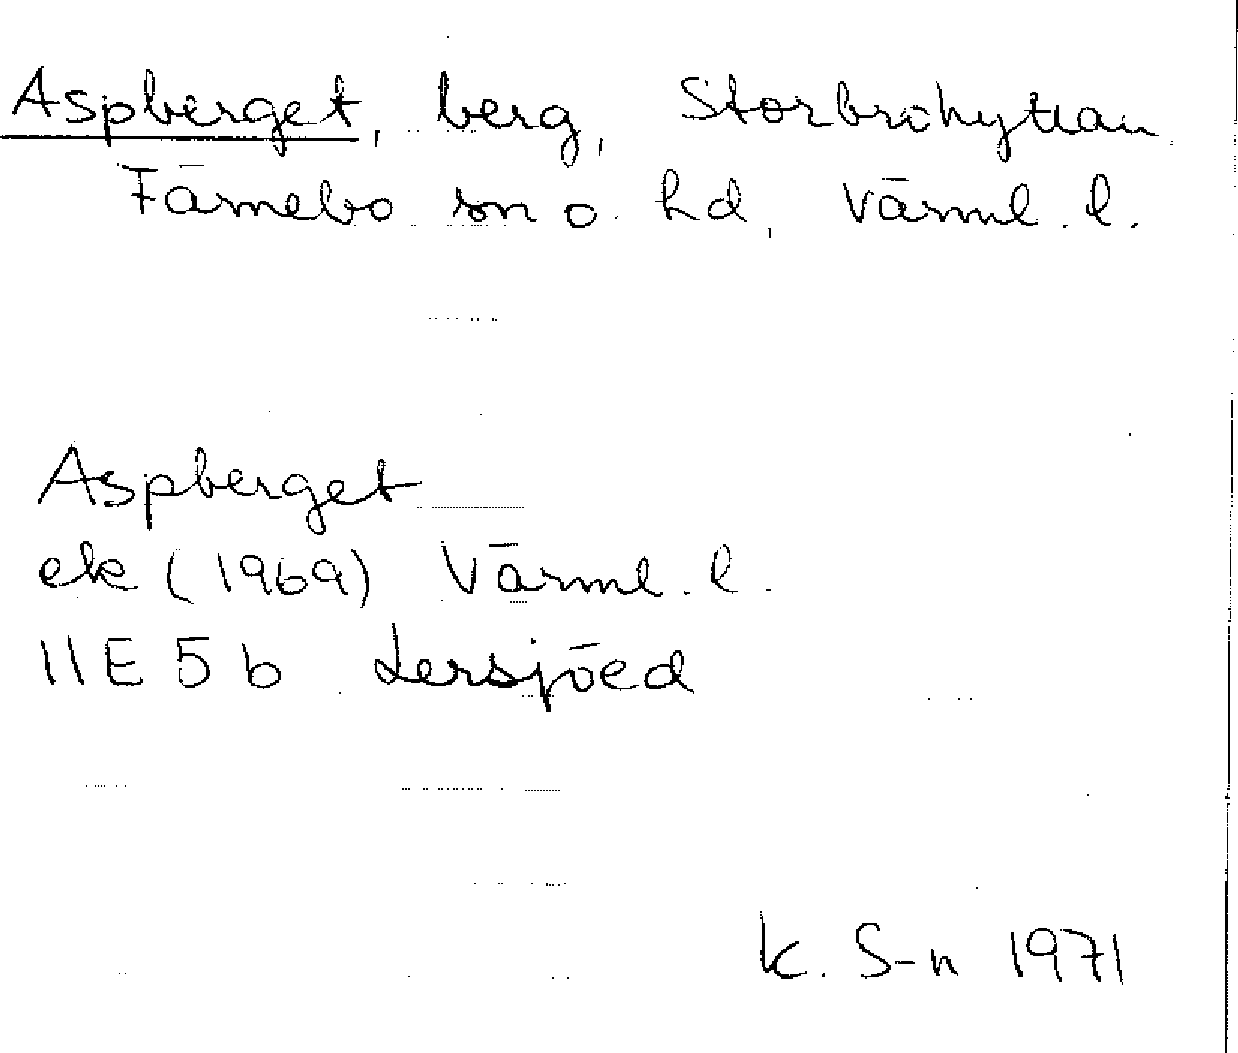 Aspberget, berg, Storbrohyttan
Färnebo sn o. hd, Värml. l.
Aspberget
ek (1969) Värml. l.
11E 5 b Lersjöed
K. S-n 1971